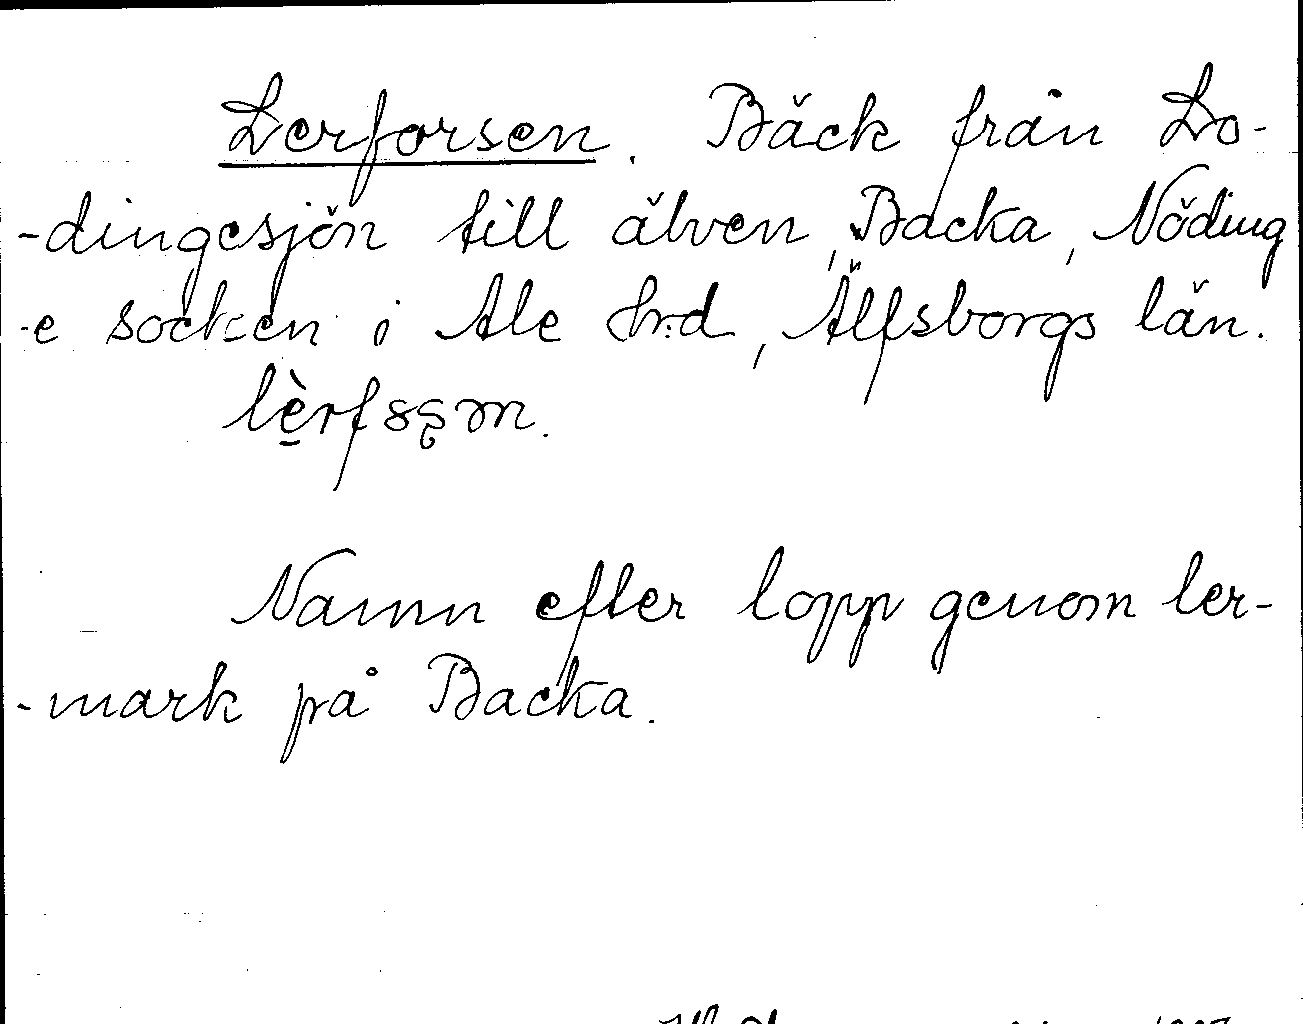 Lerforsen. Bäck från Lo-
-dingesjön till älven, Backa, Nöding
-e socken i Ale hrd, Älfsborgs län.
Namn efter lopp genom ler-
-mark på Backa.